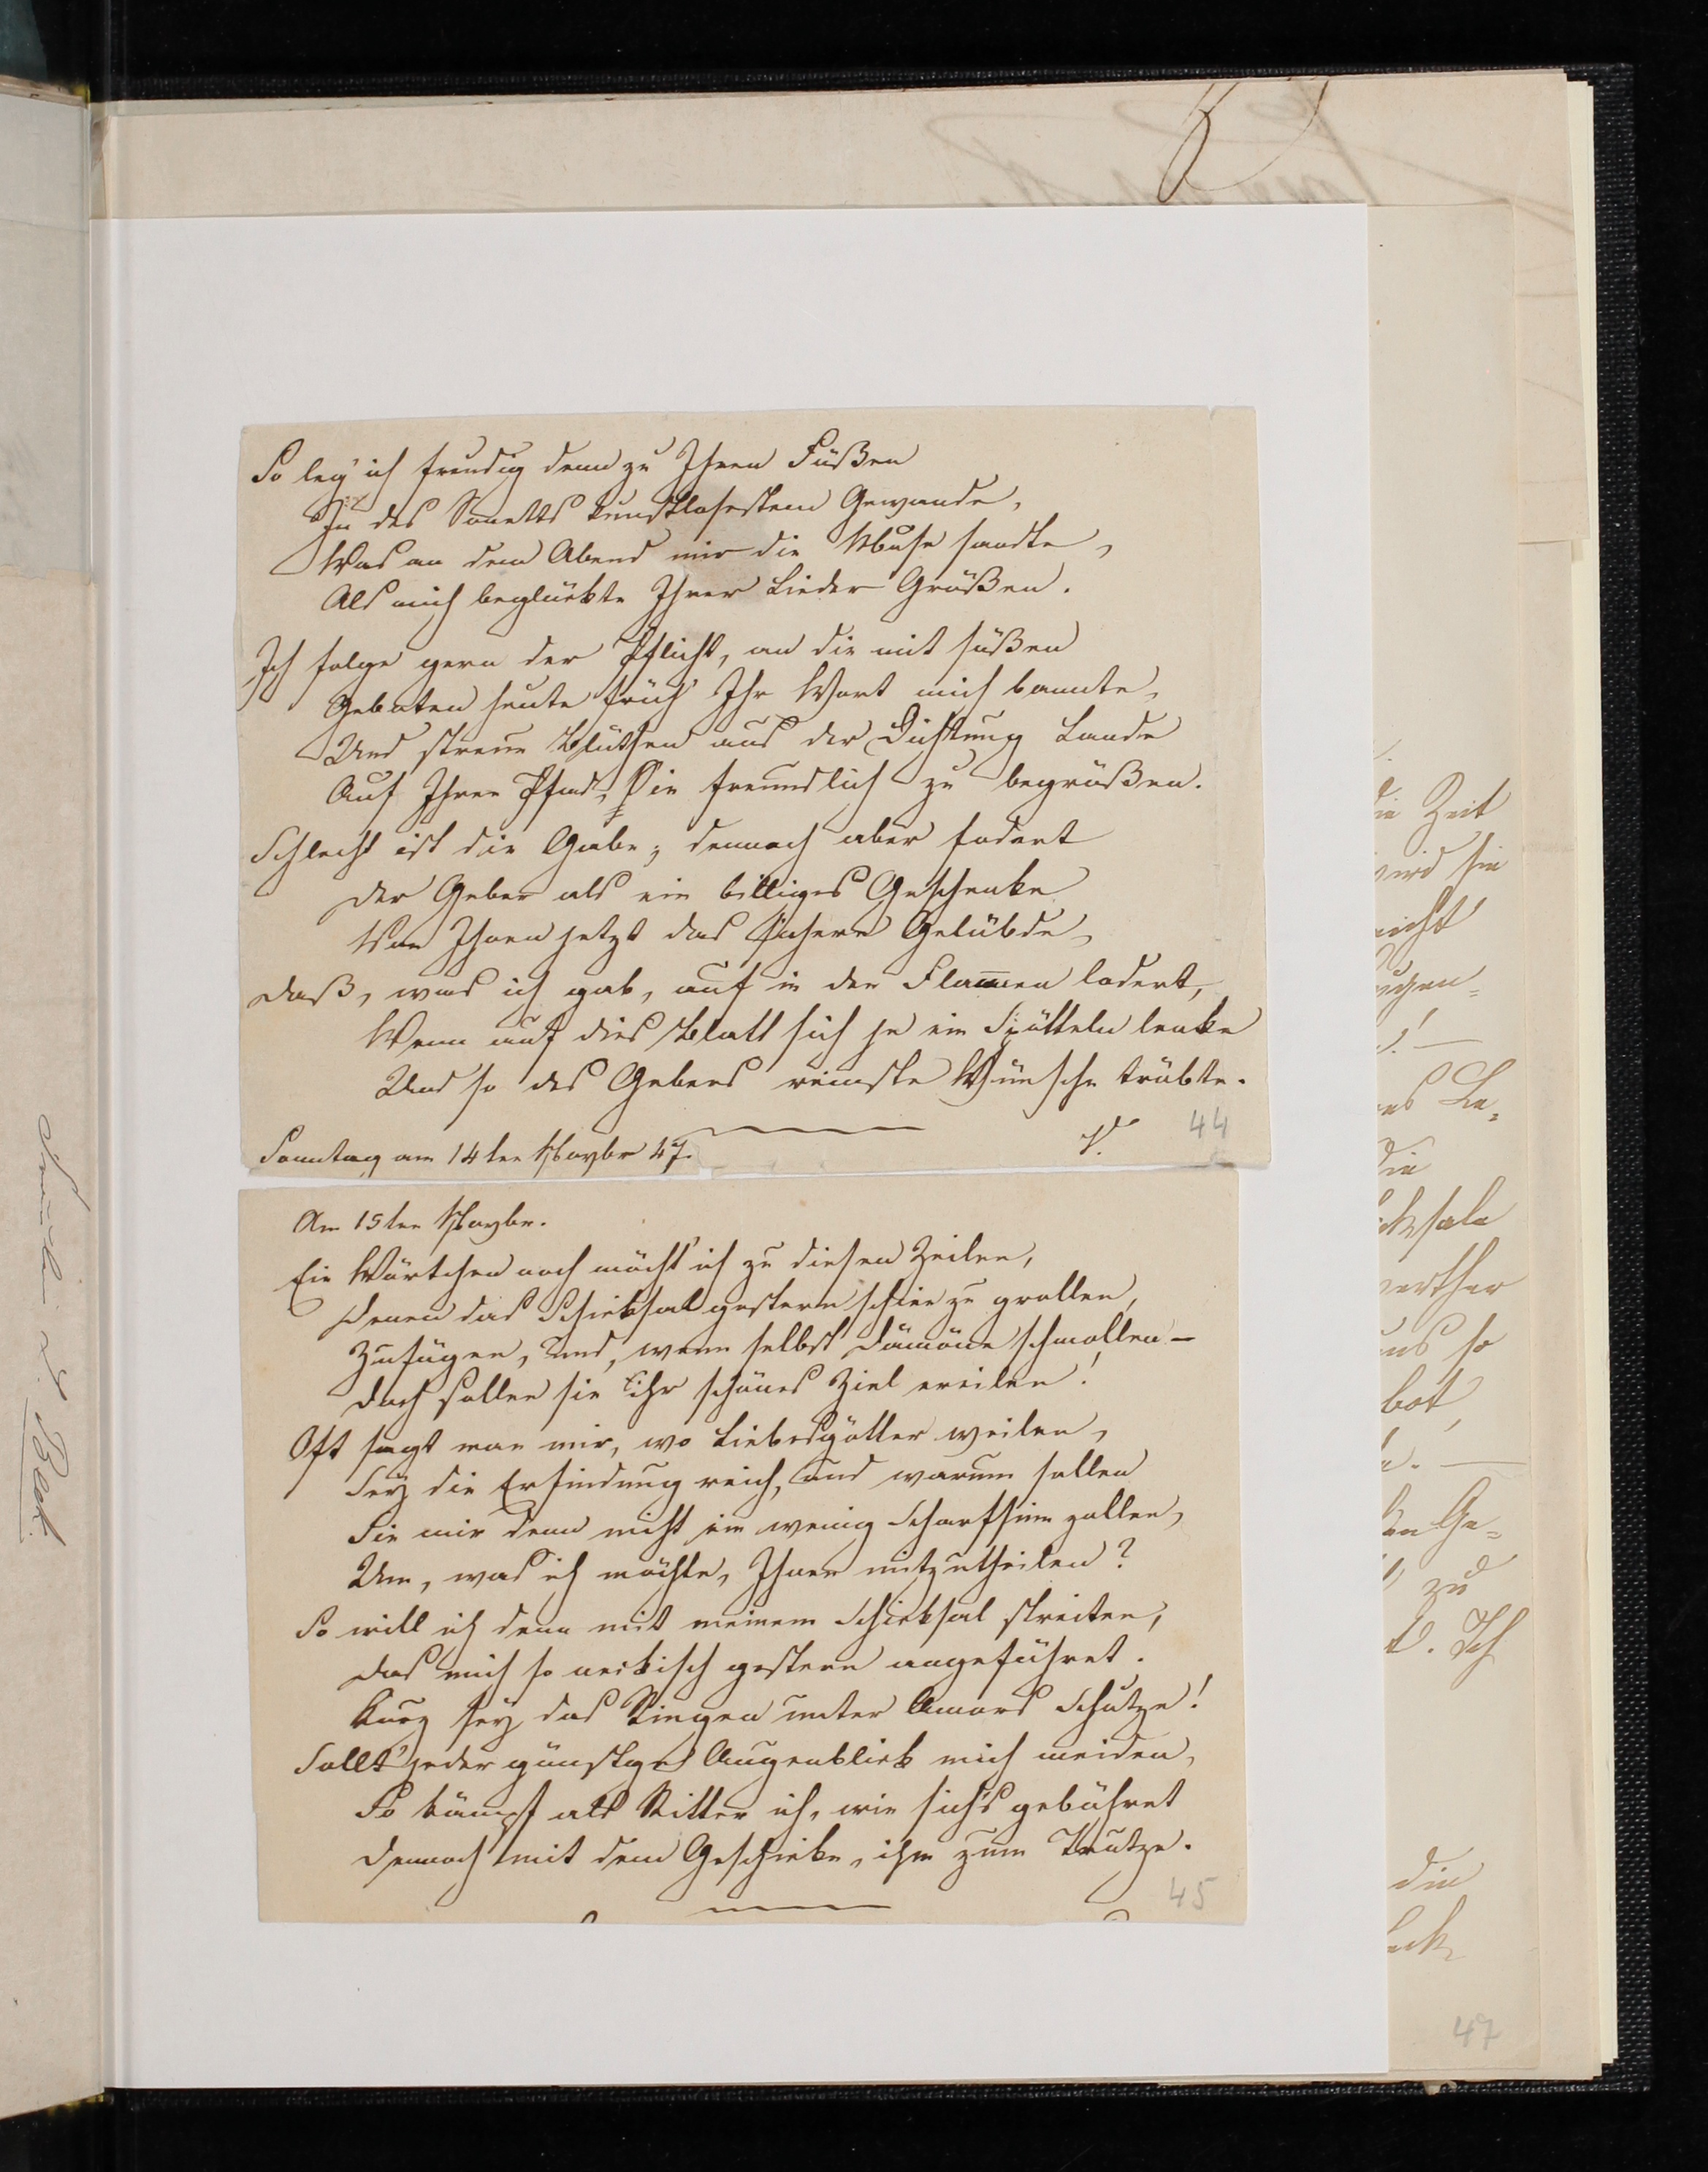 So leg' ich freudig denn zu Ihren Füßen
In des Sonetts kunstlosestem Gewande,
Was an dem Abend mir die Muse sandte,
Als mich beglückte Ihrer Lieder Grüßen.
Ich folge gern der Pflicht, an die mit süßen
Geboten heute früh' Ihr Wort mich bannte,
Und streue Blüthen aus der Dichtung Lande
Auf Ihren Pfad, Sie freundlich zu begrüßen.
Schlecht ist die Gabe; dennoch aber fodert
Der Geber als ein billiges Geschenke
Von Ihnen jetzt das sichere Gelübde,
Daß, was ich gab, auf in den Flammen lodert,
Wenn auf dies Blatt sich je ein Spötteln lenke
Und so des Gebers reinste Wünsche trübte.
Sonntag am 14ten Novbr 47.
V.
44
Am 15ten Novbr.
Ein Wörtchen noch möcht' ich zu diesen Zeilen,
Denen das Schicksal gestern schien zu grollen,
Zufügen, und, wenn selbst Dämone schmollen –
Doch sollen sie ihr schönes Ziel ereilen!
Oft sagt man mir, wo Liebesgötter weilen,
Sey die Erfindung reich, und warum sollen
Sie mir denn nicht ein wenig Scharfsinn zollen,
Um, was ich möchte, Ihnen mitzutheilen?
So will ich denn mit meinem Schicksal streiten,
Das mich so neckisch gestern angeführet.
Kurz sey das Ringen unter Amors Schutze!
Sollt' jeder günst'ge Augenblick mich meiden,
So kämpf als Ritter ich, wie sich's gebühret
Dennoch mit dem Geschicke, ihm zum Trutze.
45
die Zeit
wird sie
nicht
ugen=
es Le=
die
cksale
werther
uns so
bot,
Ge=
zu
Ich
die
47
L. Beck